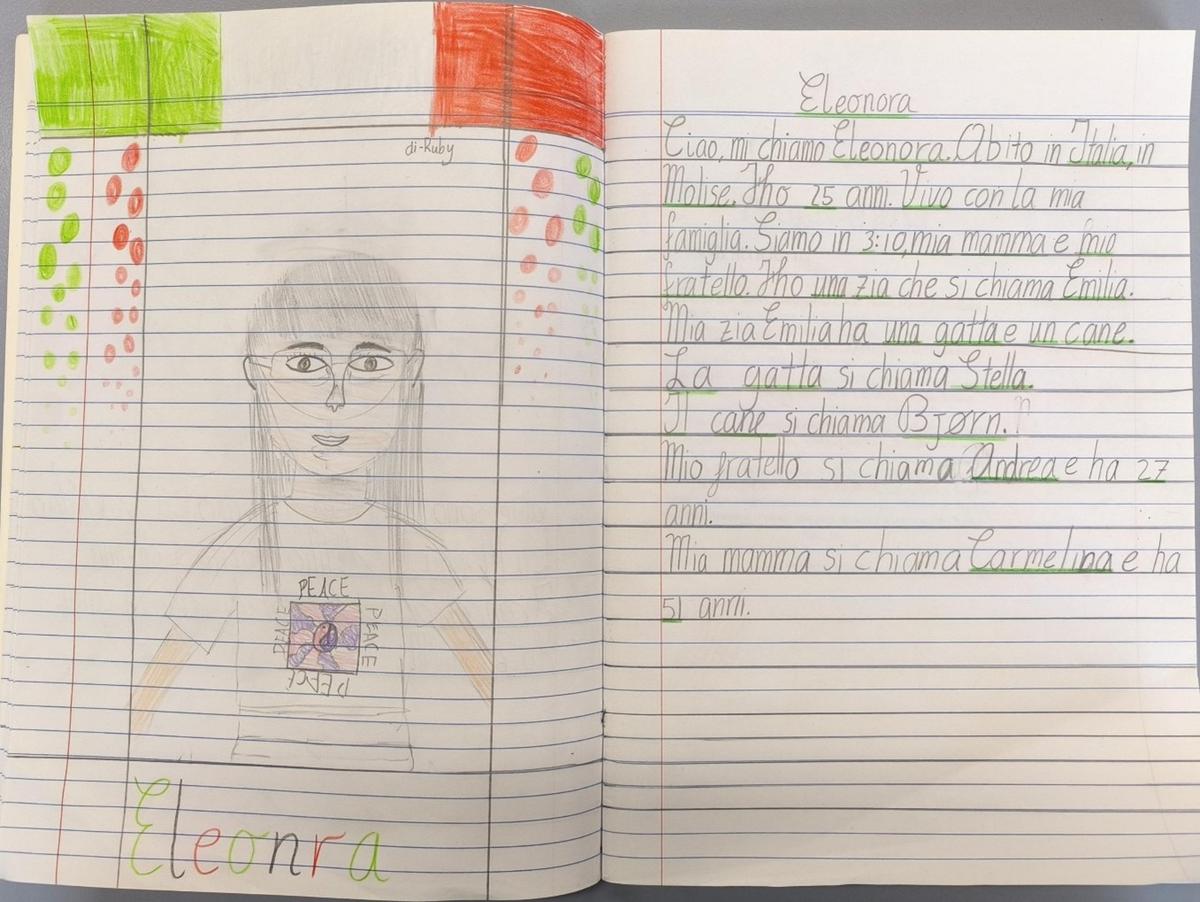 di-Ruby
PEACE
PEACE
PEACE
PEACE
Eleonra
Eleonora
Ciao, mi chiamo Eleonora. Abito in Italia, in
Molise. Ho 25 anni. Vivo con la mia
famiglia. Siamo in 3: io, mia mamma e mio
fratello. Ho una zia che si chiama Emilia.
Mia zia Emilia ha una gatta e un cane.
La gatta si chiama Stella.
Il cane si chiama Bjørn.
Mio fratello si chiama Andrea e ha 27
anni.
Mia mamma si chiama Carmelina e ha
51 anni.